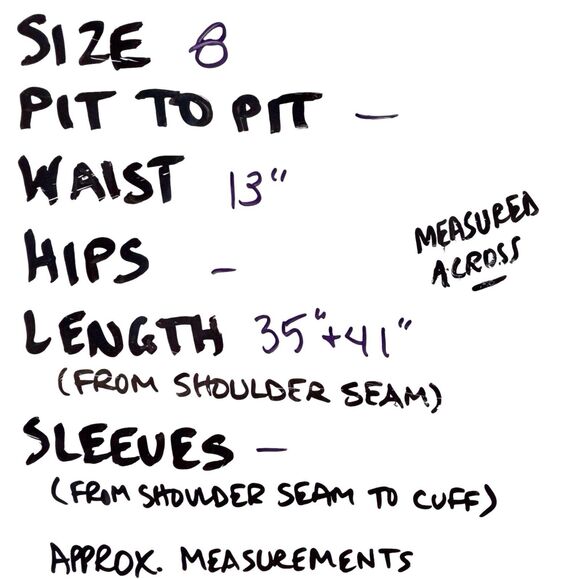 SIZE 8
PIT TO PIT -
WAIST 13"
HIPS -
MEASURED
ACROSS
LENGTH 35"+41"
(FROM SHOULDER SEAM)
SLEEVES -
(FROM SHOULDER SEAM TO CUFF)
APPROX. MEASUREMENTS